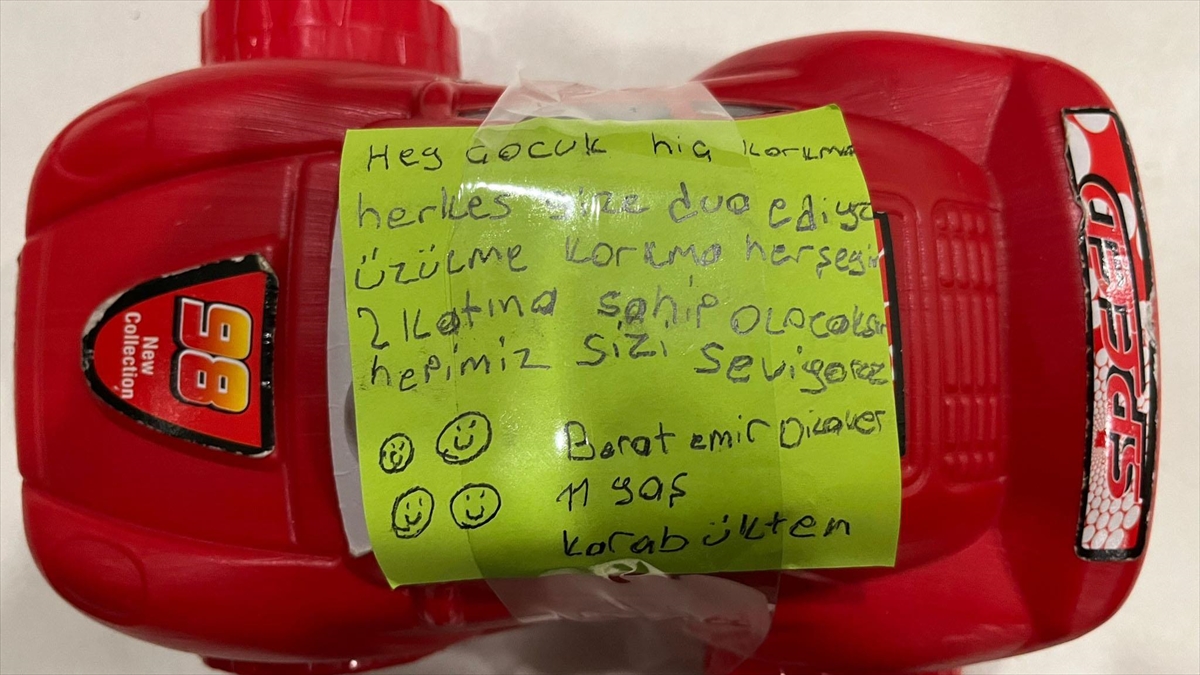 Hey çocuk hiç korkma
herkes size dua ediyo
üzülme korkma herşeyin
2 katına sahip olacaksın
hepimiz sizi seviyoruz
Berat emir Dilaver
11 yaş
karabükten
86
New
Collection
SPEED